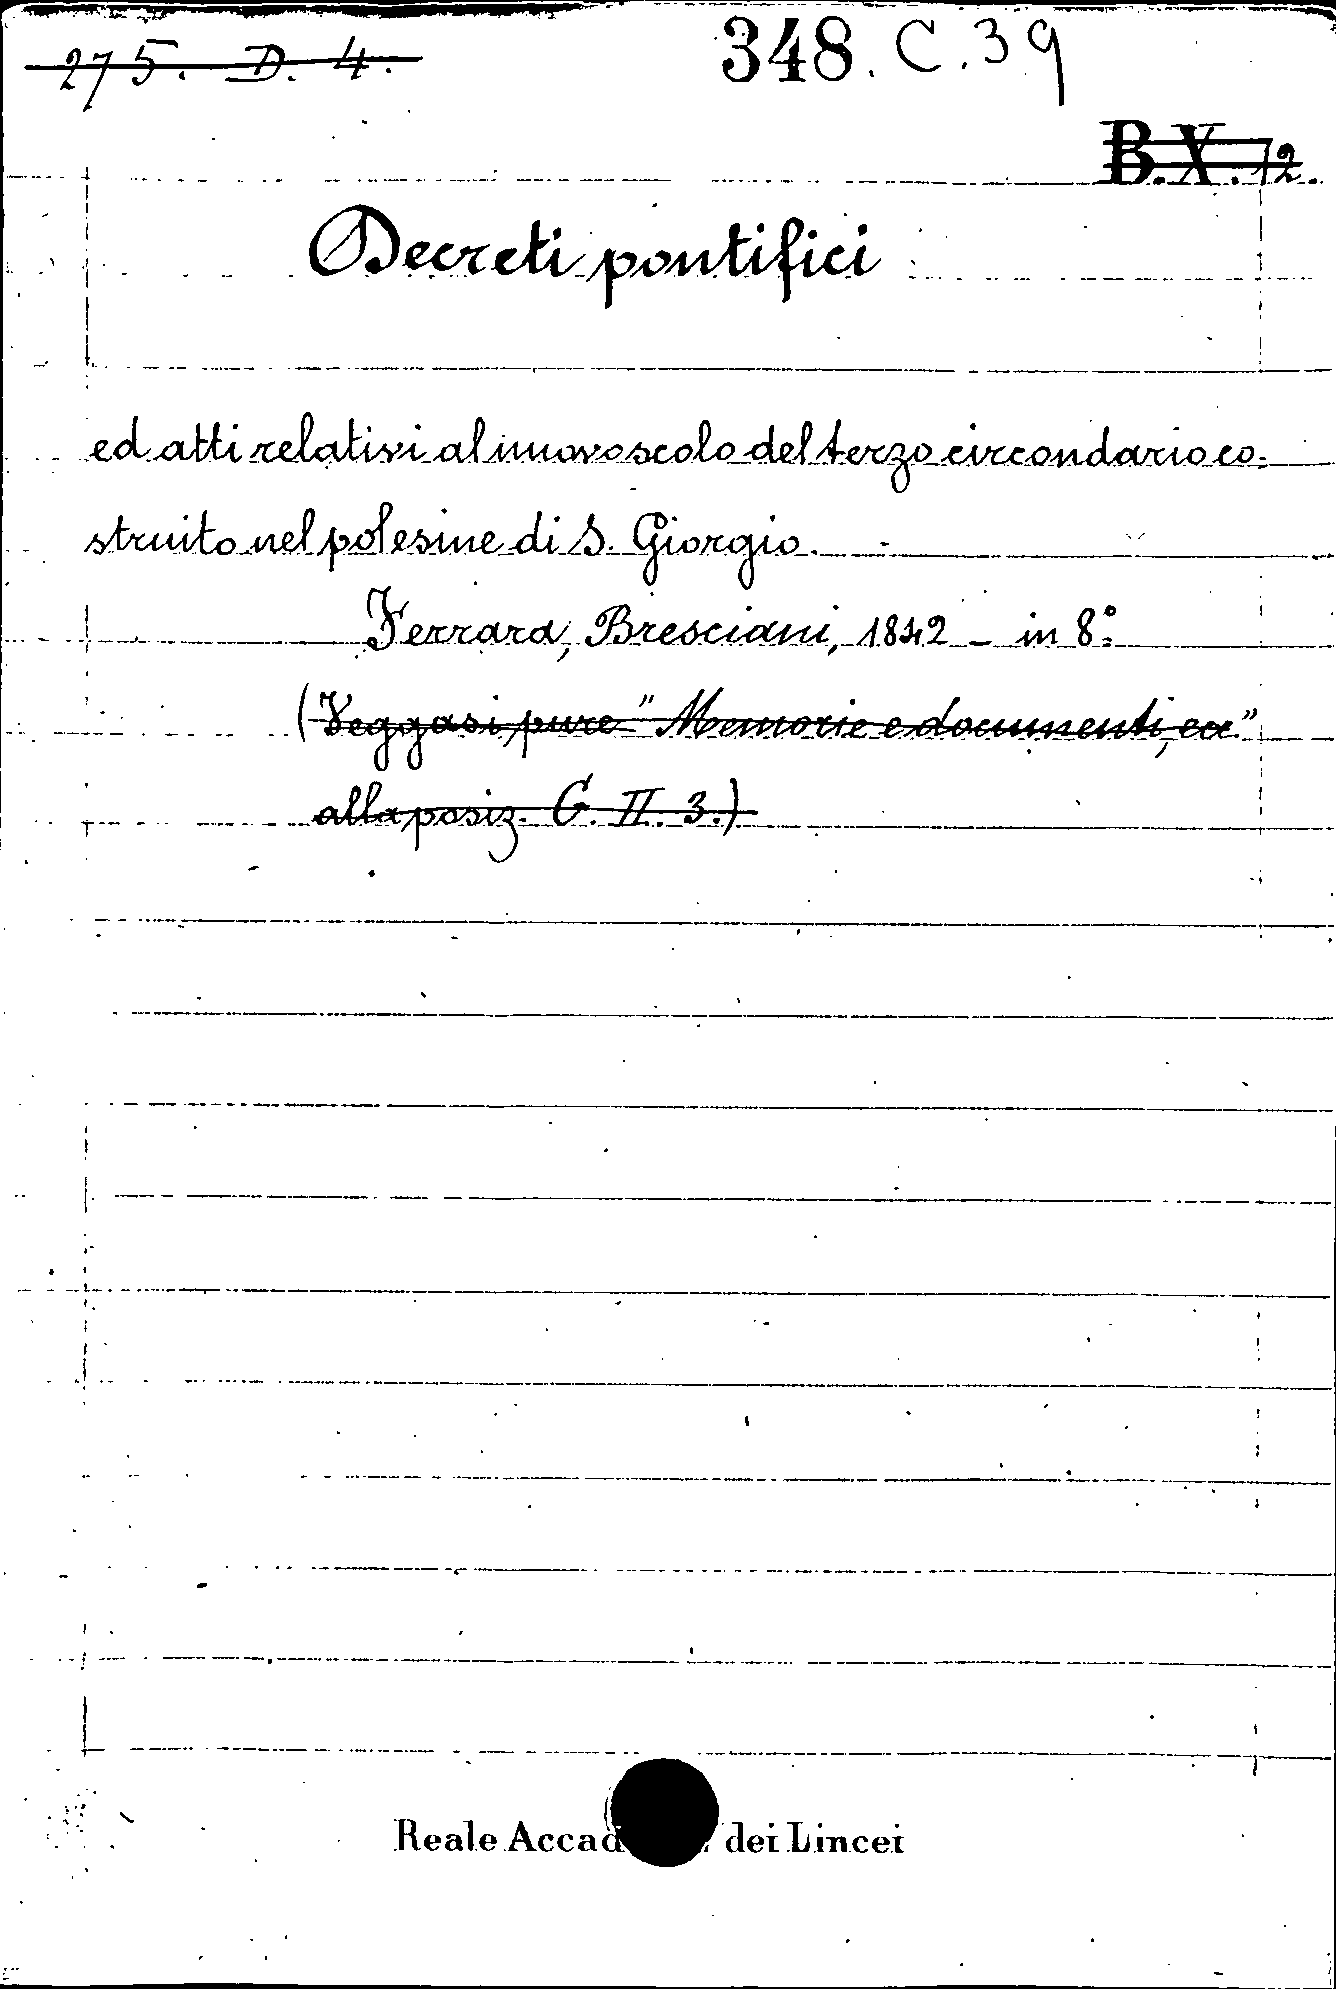 275. D. 4.
348. C. 39
B. X. 12.
Decreti pontifici
ed atti relativi al nuovo scolo del terzo circondario co-
struito nel polesine di S. Giorgio.
Ferrara, Bresciani, 1842 - in 8º.
(Veggasi pure "Memorie e documenti, ec."
alla posiz. G. II. 3.)
Reale Accad dei Lincei